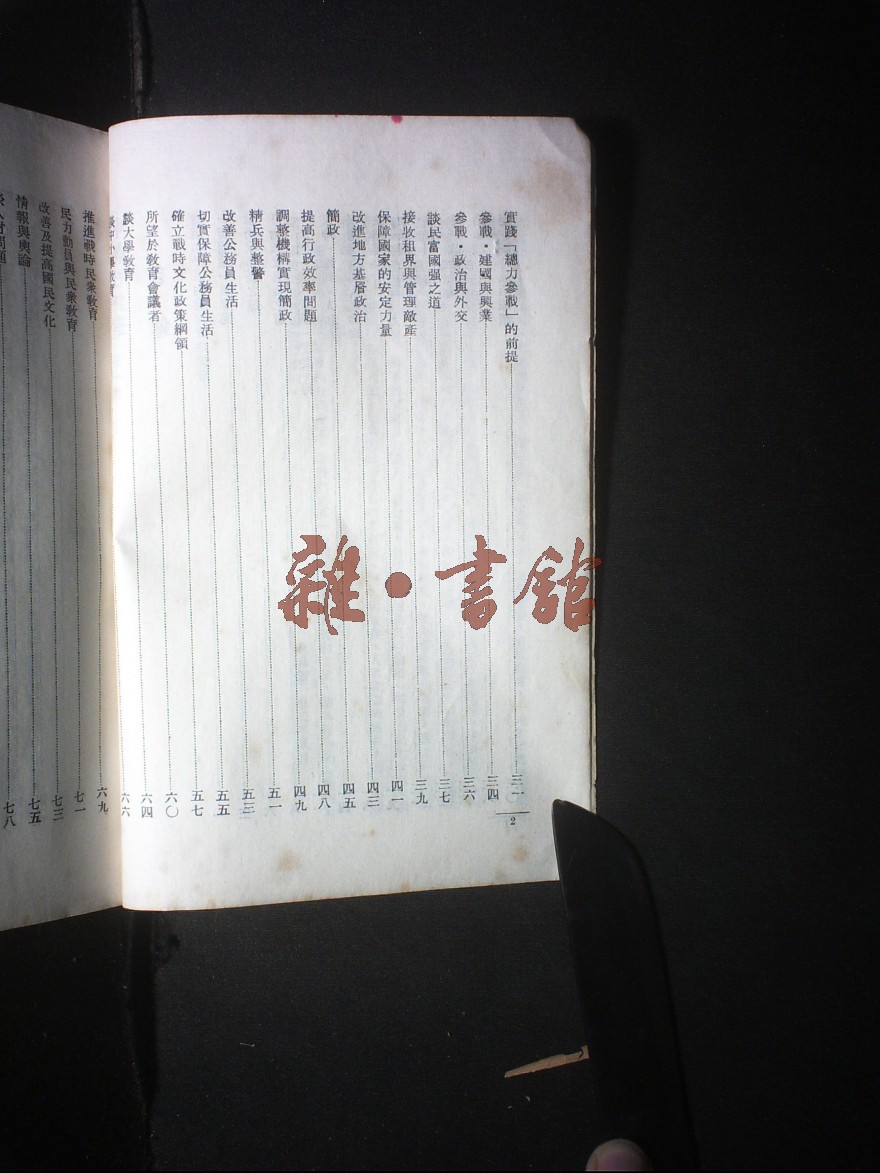 實踐「總力參戰」的前提 三一
參戰・建國與興業 三四
參戰・政治與外交 三六
談民富國强之道 三七
接收租界與管理敵產 三九
保障國家的安定力量 四一
改進地方基層政治 四三
簡政 四五
提高行政效率問題 四八
調整機構實現簡政 四九
精兵與整警 五一
改善公務員生活 五三
切實保障公務員生活 五五
確立戰時文化政策綱領 五七
所望於教育會議者 六〇
談大學教育 六四
六六
推進戰時民衆教育 六九
民力動員與民衆教育 七一
改善及提高國民文化 七三
情報與輿論 七五
問題 七八
2
雜・書館